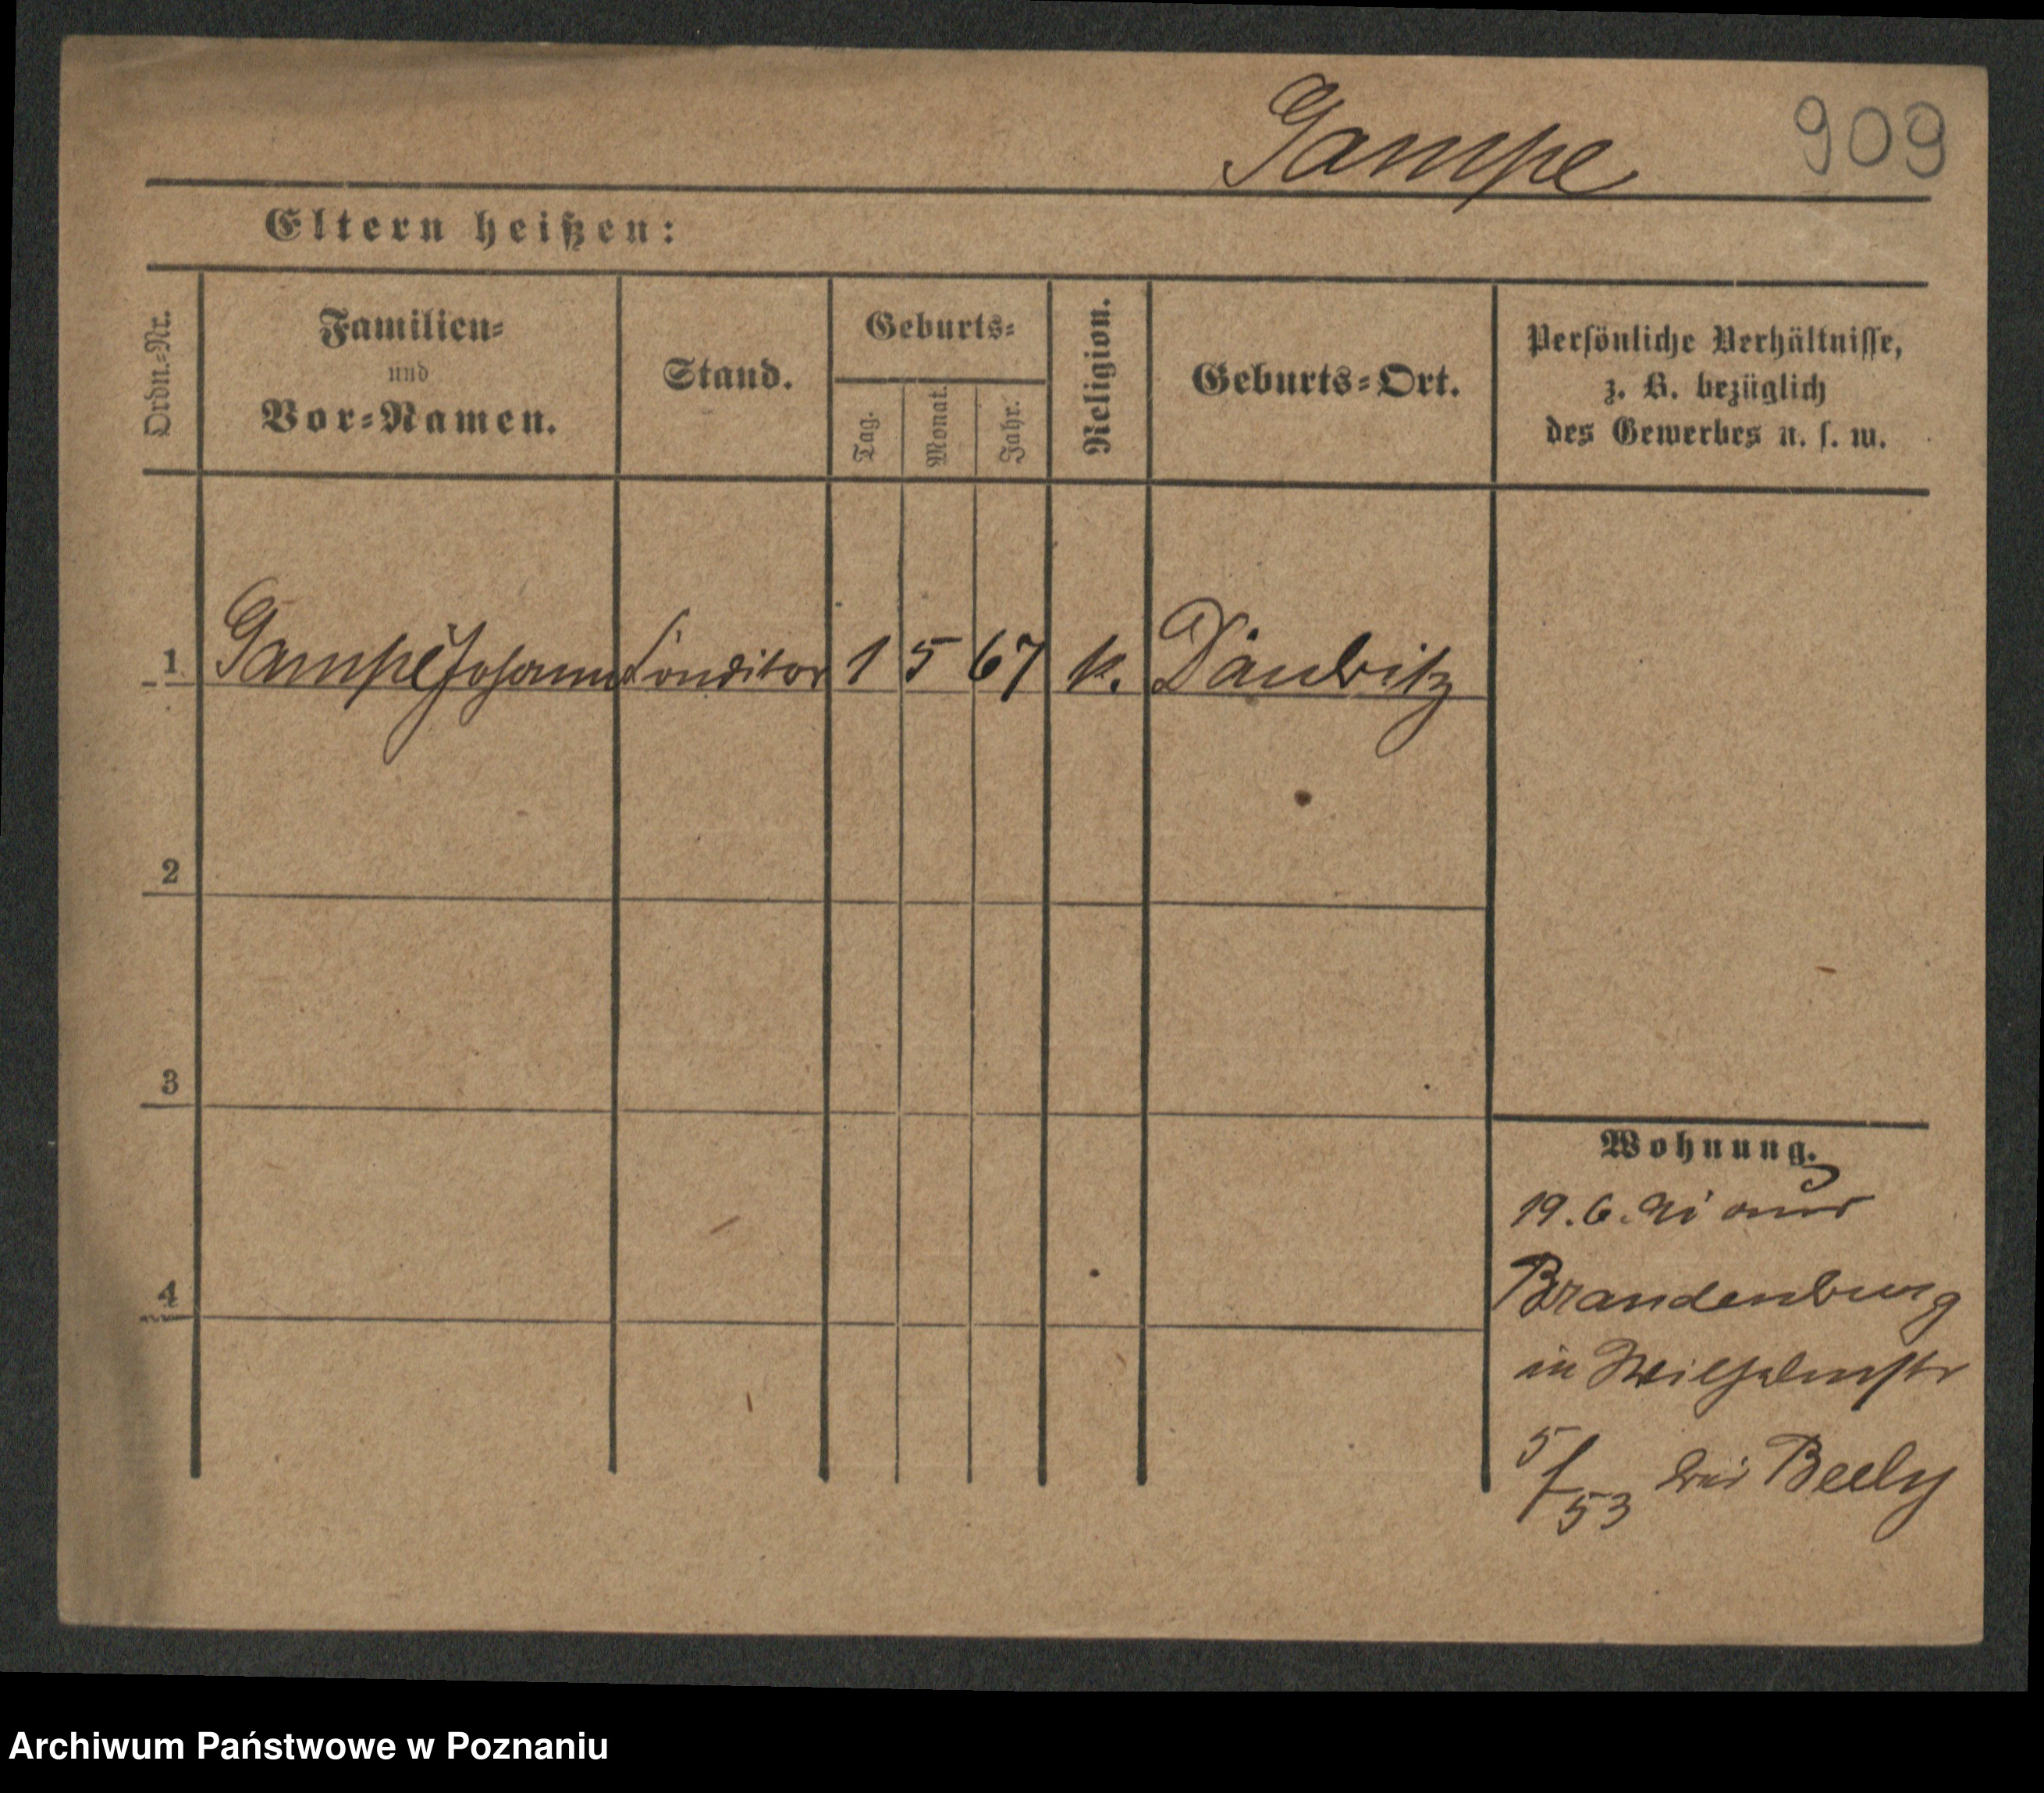 Gampe 909
Eltern heißen:
Ordn.=Nr.
Familien=
und
Vor=Namen.
Stand.
Geburts=
Tag.
Monat.
Jahr.
Religion.
Geburts=Ort.
Persönliche Verhältnisse,
z. B. bezüglich
des Gewerbes u. s. w.
1 Gampe Johann Conditor 1 5 67 k. Däubitz
2
3
4
Wohnung.
19. 6. aus
Brandenburg
in Wilhelmstr
5/53 bei Beely
Archiwum Państwowe w Poznaniu